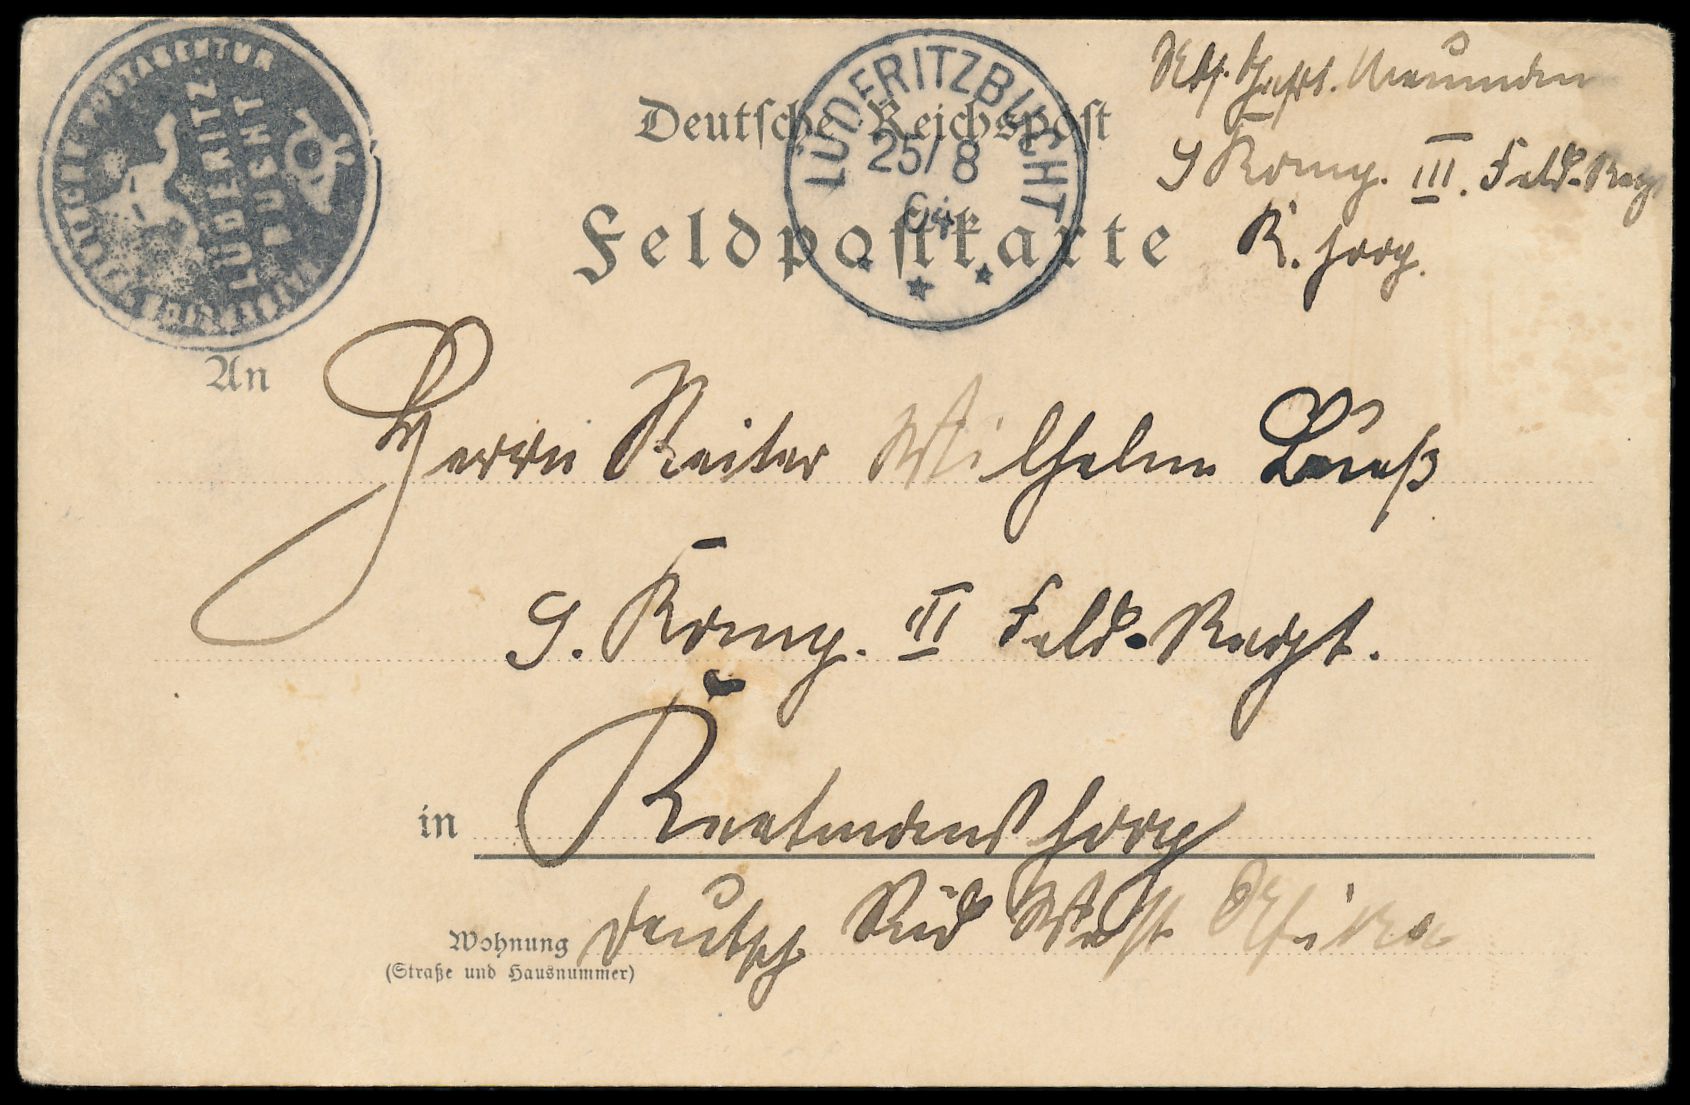 KAISERLICHE DEUTSCHE POSTAGENTUR
LÜDERITZ
BUCHT
Deutsche Reichspost
LÜDERITZBUCHT
25/8
04
Feldpostkarte
Abs.
9 Komp. III. Feld-Regt
K. hoop.
An
Herrn Reiter Wilhelm
9. Komp. II Feld-Regt.
in Keetmanshoop
Wohnung
(Straße und Hausnummer)
Deutsch Süd West Afrika